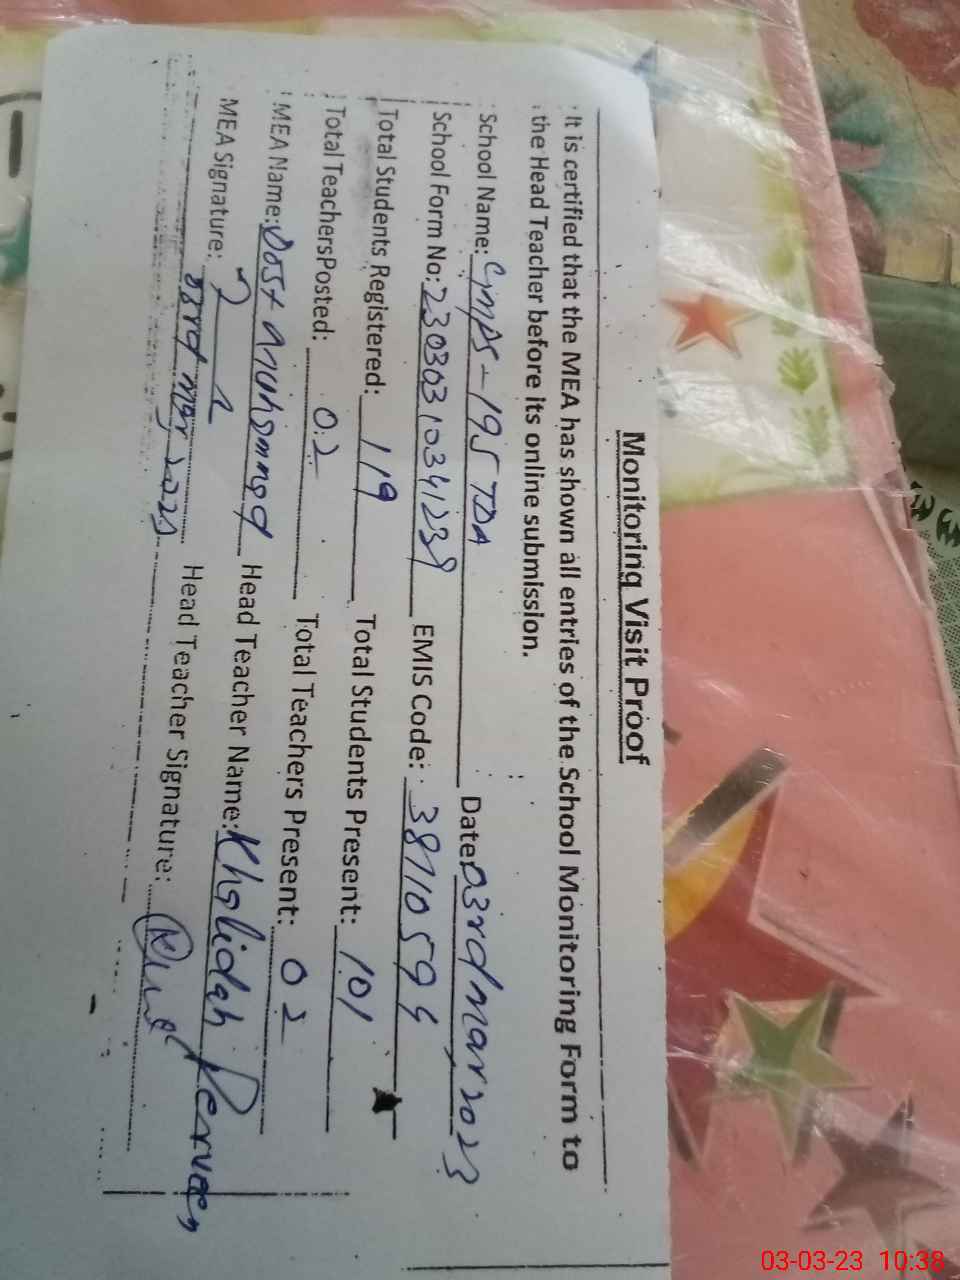 Monitoring Visit Proof
It is certified that the MEA has shown all entries of the School Monitoring Form to
the Head Teacher before its online submission.
School Name: Cmps-195 TDA Date: 03rd Mar 2023
School Form No: 23030310341239 EMIS Code: 38710594
Total Students Registered: 119 Total Students Present: 101
Total Teachers Posted: 02 Total Teachers Present: 02
MEA Name: Dost Muhammad Head Teacher Name: Khalidah Perveen
MEA Signature: Head Teacher Signature:
03rd Mar 2023
03-03-23 10:38